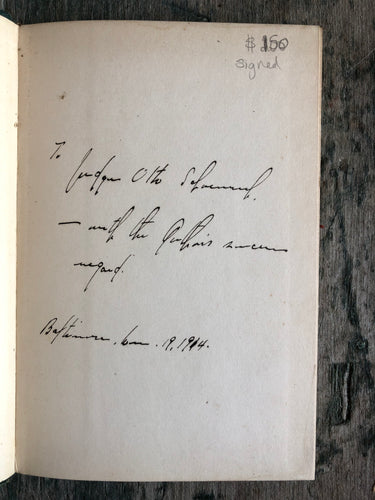 $150
signed
To
Judge Otto
— with the Author's sincere
regard.
Baltimore, 19, 1914.